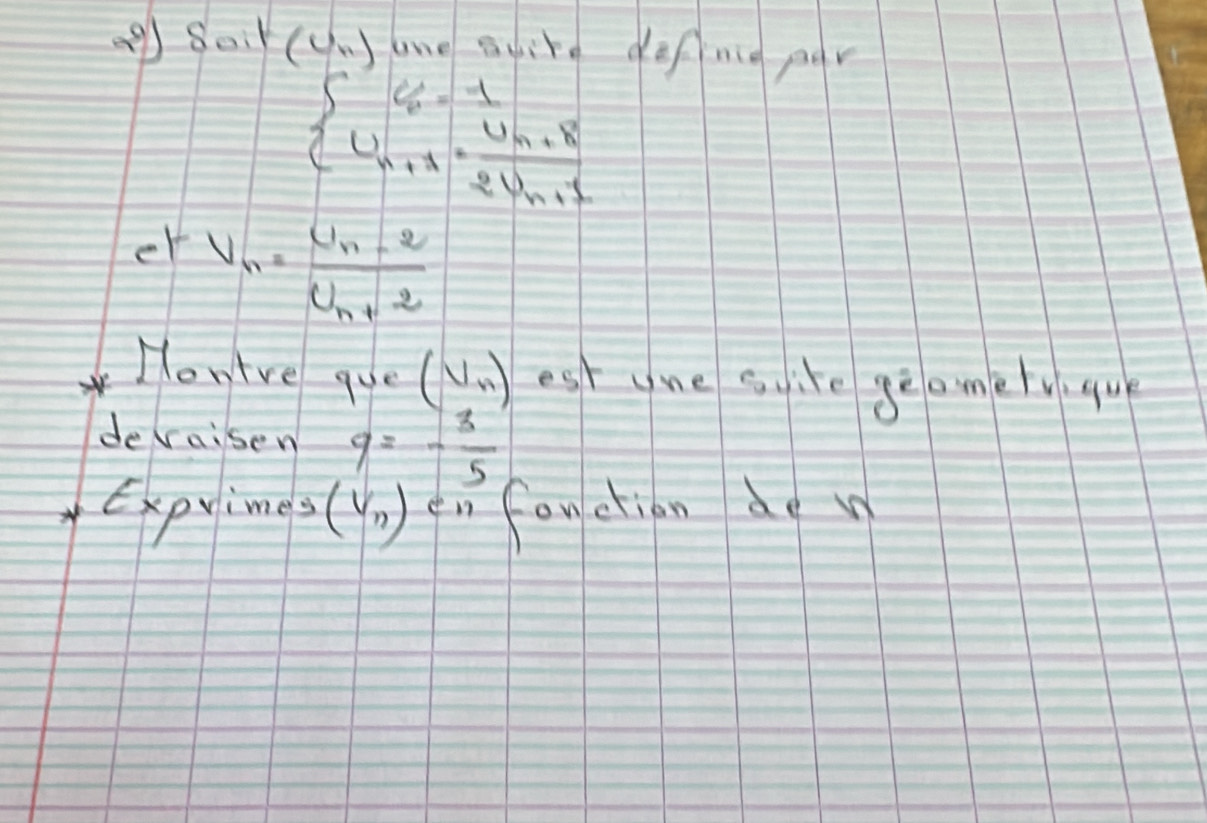 2°) Soit (Un) une suite definie par
{ U₀ = 1
{ Un+1 = Un + 8 / 2Un + 1
et Vn = Un - 2 / Un + 2
* Montre que (Vn) est une suite géometrique
de raisen q = - 3/5
* Exprimes (Vn) en fonction de n